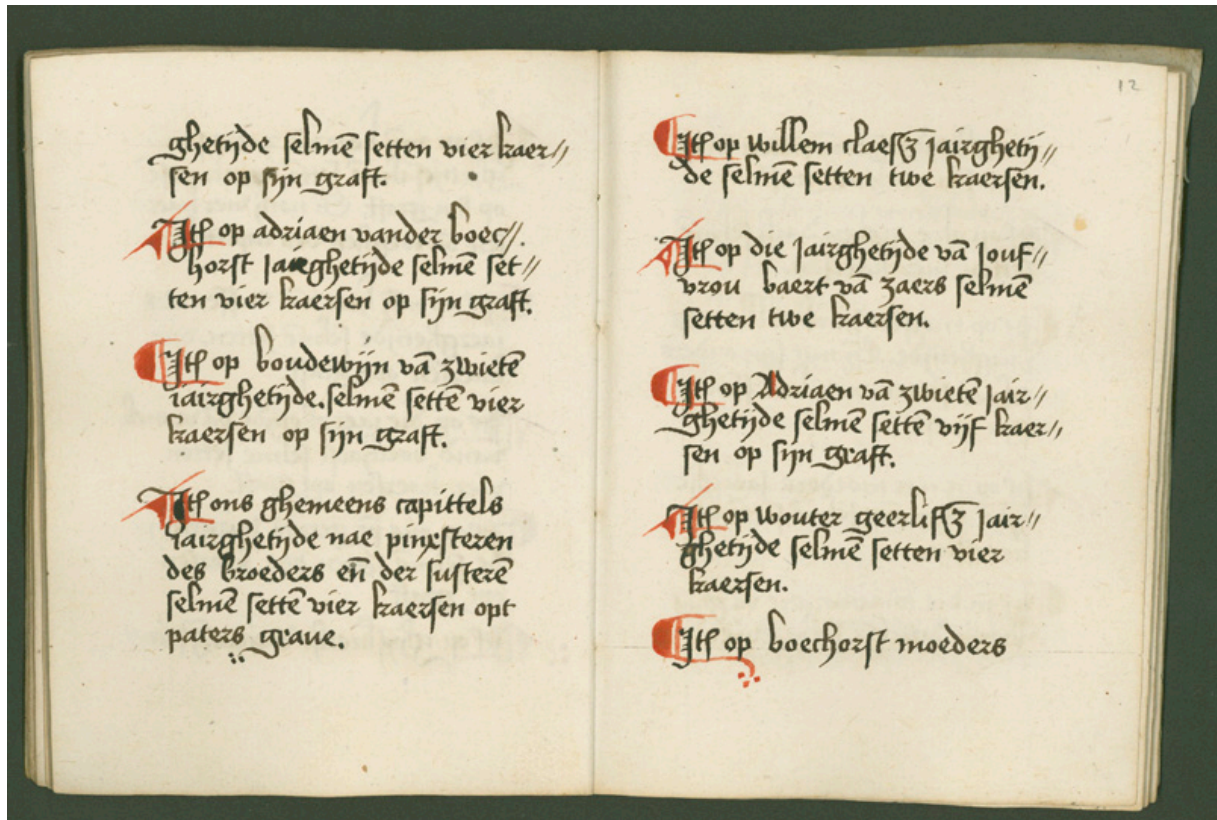 ghetijde selmē setten vier kaer//
sen op sijn graft.
Itē op adriaen vander boec//.
horst Iaerghetijde selmē set//
ten vier kaersen op sijn graft.
Itē op boudewijn vā zwietē
iairghetijde. selmē settē vier
kaersen op sijn graft.
Itē ons ghemeens capittels
iairghetijde nae pinxsteren
des broeders eñ der susterē
selmē settē vier kaersen opt
paters graue.
12
Itē op willem claesſꝫ Jairghetij//
de selmē setten twe kaersen.
Itē op die Jairghetijde vā Jouf//
vrou baert vā zaers selmē
setten twe kaersen.
Itē op Adriaen vā zwietē Jair//
ghetijde selmē settē vijf kaer//
sen op sijn graft.
Itē op wouter geerlifſꝫ Jair//
ghetijde selmē setten vier
kaersen.
Itē op boechorst moeders